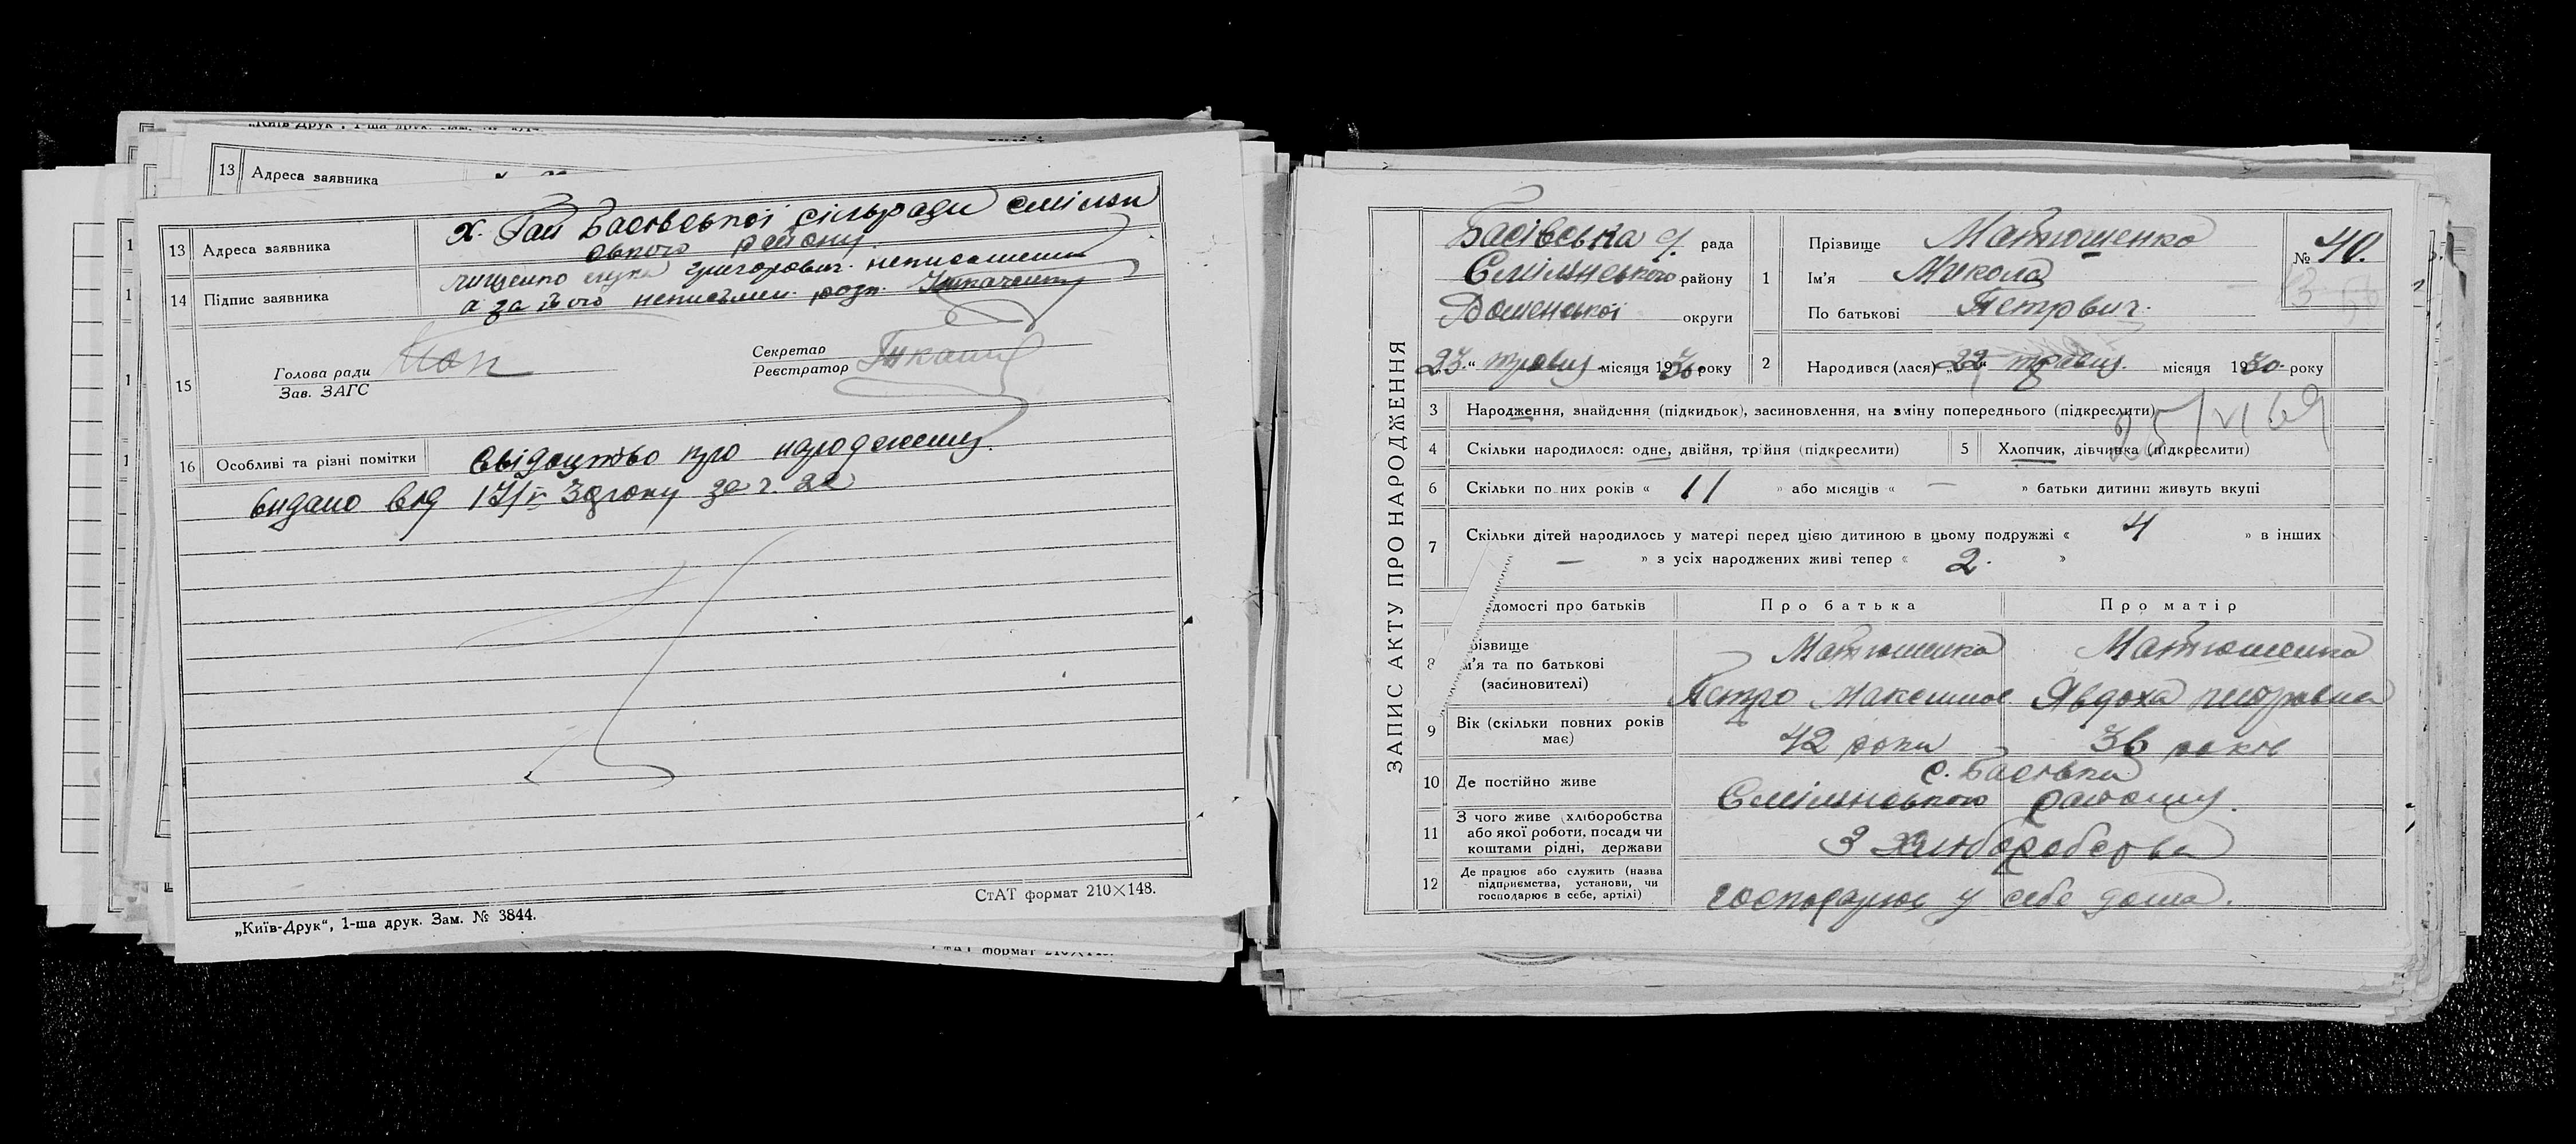 13 Адреса заявника
13 Адреса заявника х. Гай Басівської сільради Смілян
ського району.
14 Підпис заявника Григорович неписьменн
а за його неписьмен. розп.
15 Голова ради
Зав. ЗАГС
Секретар
Реєстратор
16 Особливі та різні помітки Свідоцтво про народження
видано від
СтАТ формат 210×148.
„Київ-Друк“, 1-ша друк. Зам. № 3844.
ЗАПИС АКТУ ПРО НАРОДЖЕННЯ
Басівська с. рада
Смілянського району
округи
„23“ травня місяця 1930 року
1 Прізвище Матюшенко
Ім'я Микола
По батькові Петрович.
№ 40.
2 Народився (лася) „22“ травня місяця 1930 року
3 Народження, знайдення (підкидьок), засиновлення, на зміну попереднього (підкреслити)
4 Скільки народилося: одне, двійня, трійня (підкреслити) 5 Хлопчик, дівчинка (підкреслити)
6 Скільки повних років « 11 » або місяців « — » батьки дитини живуть вкупі
7 Скільки дітей народилось у матері перед цією дитиною в цьому подружжі « 4 » в інших
— » з усіх народжених живі тепер « 2. »
домості про батьків Про батька Про матір
8 різвище
м'я та по батькові
(засиновителі)
Матюшенко Матюшенко
Петро Максимов Явдоха
9 Вік (скільки повних років має) 42 роки 36 років
10 Де постійно живе с. Басівка
Смілянського району.
11 З чого живе (хліборобства
або якої роботи, посади чи
коштами рідні, держави
З хліборобства
12 Де працює або служить (назва
підприємства, установи, чи
господарює в себе, артілі)
господарює у себе дома.